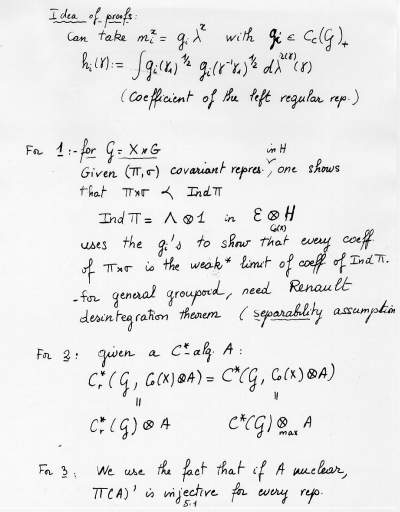 Idea of proofs:
Can take mᵢˣ = gᵢ λˣ with gᵢ ∈ Cc(G)₊
hᵢ(γ) := ∫ gᵢ(γ₁)^1/2 gᵢ(γ⁻¹γ₁)^1/2 dλ^r(γ)(γ)
(Coefficient of the left regular rep.)
For 1: - for G = X ⋊ G
Given (π, σ) covariant repres. in H, one shows
that π⋊σ ≺ Ind π
Ind π = Λ ⊗ 1 in Ɛ ⊗_C₀(X) H
uses the gᵢ's to show that every coeff
of π⋊σ is the weak* limit of coeff of Ind π.
- For general groupoid, need Renault
desintegration theorem (separability assumption
For 2: given a C*-alg. A:
C*ᵣ(G, C₀(X)⊗A) = C*(G, C₀(X)⊗A)
= =
C*ᵣ(G) ⊗ A C*(G) ⊗_max A
For 3: We use the fact that if A nuclear,
π(A)' is injective for every rep.
5.1